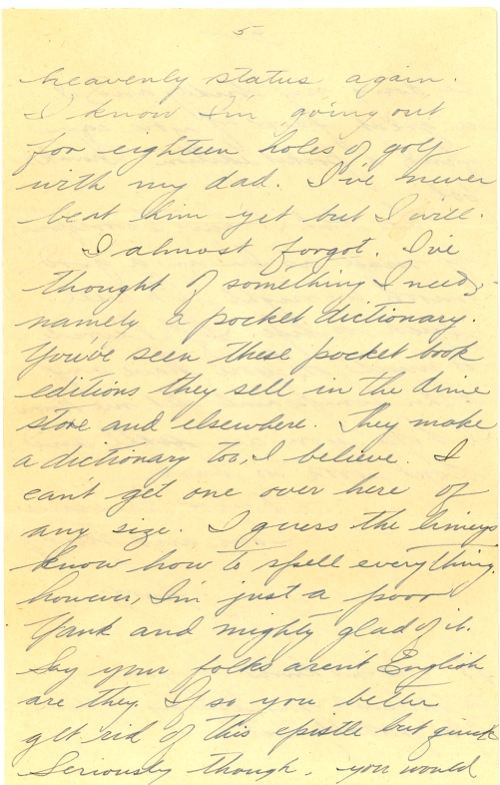 5
heavenly status again.
I know I'm going out
for eighteen holes of golf
with my dad. I've never
beat him yet but I will.
I almost forgot. I've
thought of something I need,
namely a pocket dictionary.
You've seen these pocket book
editions they sell in the dime
store and elsewhere. They make
a dictionary too, I believe. I
can't get one over here of
any size. I guess the limeys
know how to spell everything.
however, I'm just a poor
Yank and mighty glad of it.
Say your folks aren't English
are they. If so you better
get rid of this epistle but quick
Seriously though, you would